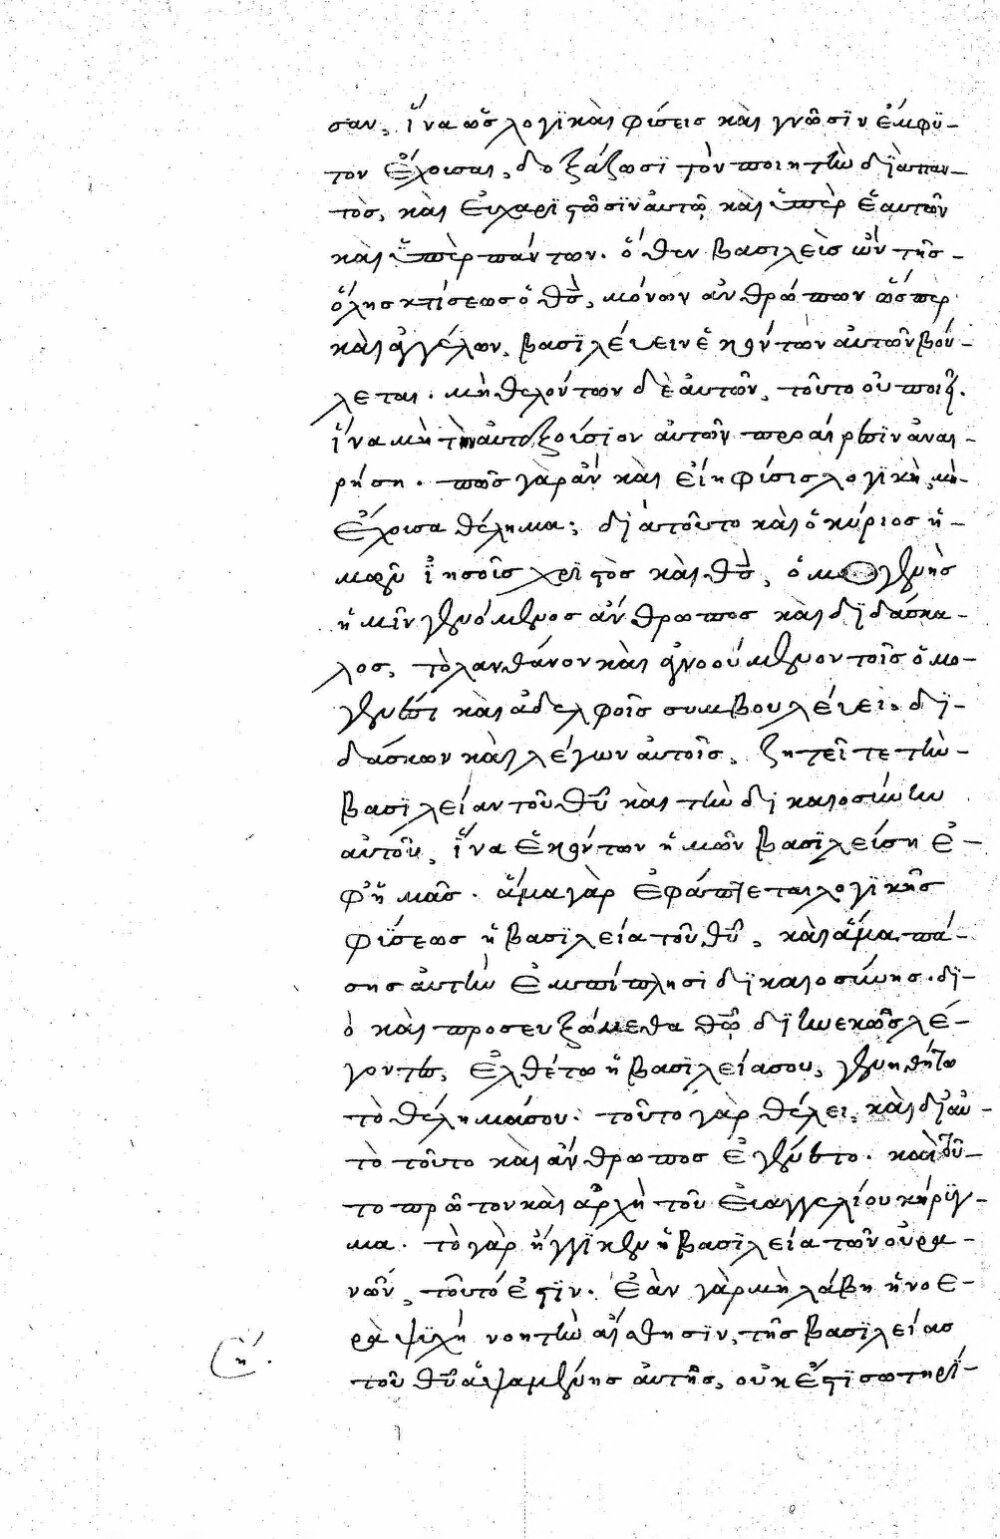 σαν, ἵνα ὡς λογϊκαὶ φύσεις καὶ γνῶσϊν ἔμφϋ-
τον ἔχουσαι, δοξάζωσϊ τὸν ποιητὴν δϊαπαν-
τὸς, καὶ εὐχαρϊστῶσϊν αὐτῶ καὶ ὑπὲρ ἑαυτῶν
καὶ ὑπὲρ πάντων. ὅθεν βασιλεὺς ὢν τῆς-
ὅλης κτίσεως ὁ θς, μόνων ἀνθρώπων ὥσπερ
καὶ ἀγγέλων, βασϊλεύειν ἑκόντων αὐτῶν βού-
λεται. μὴ θελόντων δὲ αὐτῶν, τοῦτο οὐ ποιεῖ.
ἵνα μὴ τὴν αὐτοξούσϊον αὐτῶν προαίρεσϊν ἀναι-
ρήση. πῶς γὰρ ἂν καὶ εἴη φύσις λογϊκὴ, μὴ-
ἔχουσα θέλημα; δϊὰ τοῦτο καὶ ὁ κύριος ἡ-
μῶν ἰησοῦς χρϊστὸς καὶ θς, ὁμογενὴς
ἡμῖν γενόμενος ἄνθρωπος καὶ δϊδάσκα-
λος, τὸ λανθάνον καὶ ἀγνοούμενον τοῖς ὁμο-
γενέσι καὶ ἀδελφοῖς συμβουλεύει. δϊ-
δάσκων καὶ λέγων αὐτοῖς, ζητεῖτε τὴν-
βασϊλείαν τοῦ θυ καὶ τὴν δικαιοσύνην
αὐτοῦ, ἵνα ἑκόντων ἡμῶν βασϊλεύση ἐ-
φ' ἡμᾶς. ἅμα γὰρ ἐφάπτεται λογϊκῆς
φϋσεως ἡ βασϊλεία τοῦ θυ, καὶ ἅμα πά-
σης αὐτὴν ἐμπίπλησϊ δϊκαιοσύνης. δϊ-
ὸ καὶ προσευξώμεθα θῶ δϊηνεκῶς λέ-
γοντες, ἐλθέτω ἡ βασϊλεία σου, γενηθήτω
τὸ θέλημά σου. τοῦτο γὰρ θέλει, καὶ δϊ' αὐ-
τὸ τοῦτο καὶ ἄνθρωπος ἐγένετο. καὶ τοῦ-
το πρῶτον καὶ ἀρχὴ τοῦ εὐαγγελίου κήρϋγ-
μα. τὸ γὰρ ἤγγϊκεν ἡ βασϊλεία τῶν οὐρα-
νῶν, τοῦτό ἐστϊν. ἐὰν γὰρ μὴ λάβη ἡ νοε-
ρὰ ψϋχὴ νοητὴν αἴσθησϊν, τῆς βασϊλείας
ή.
τοῦ θυ ἁψαμένης αὐτῆς, οὐκ ἔστϊ σωτηρί-